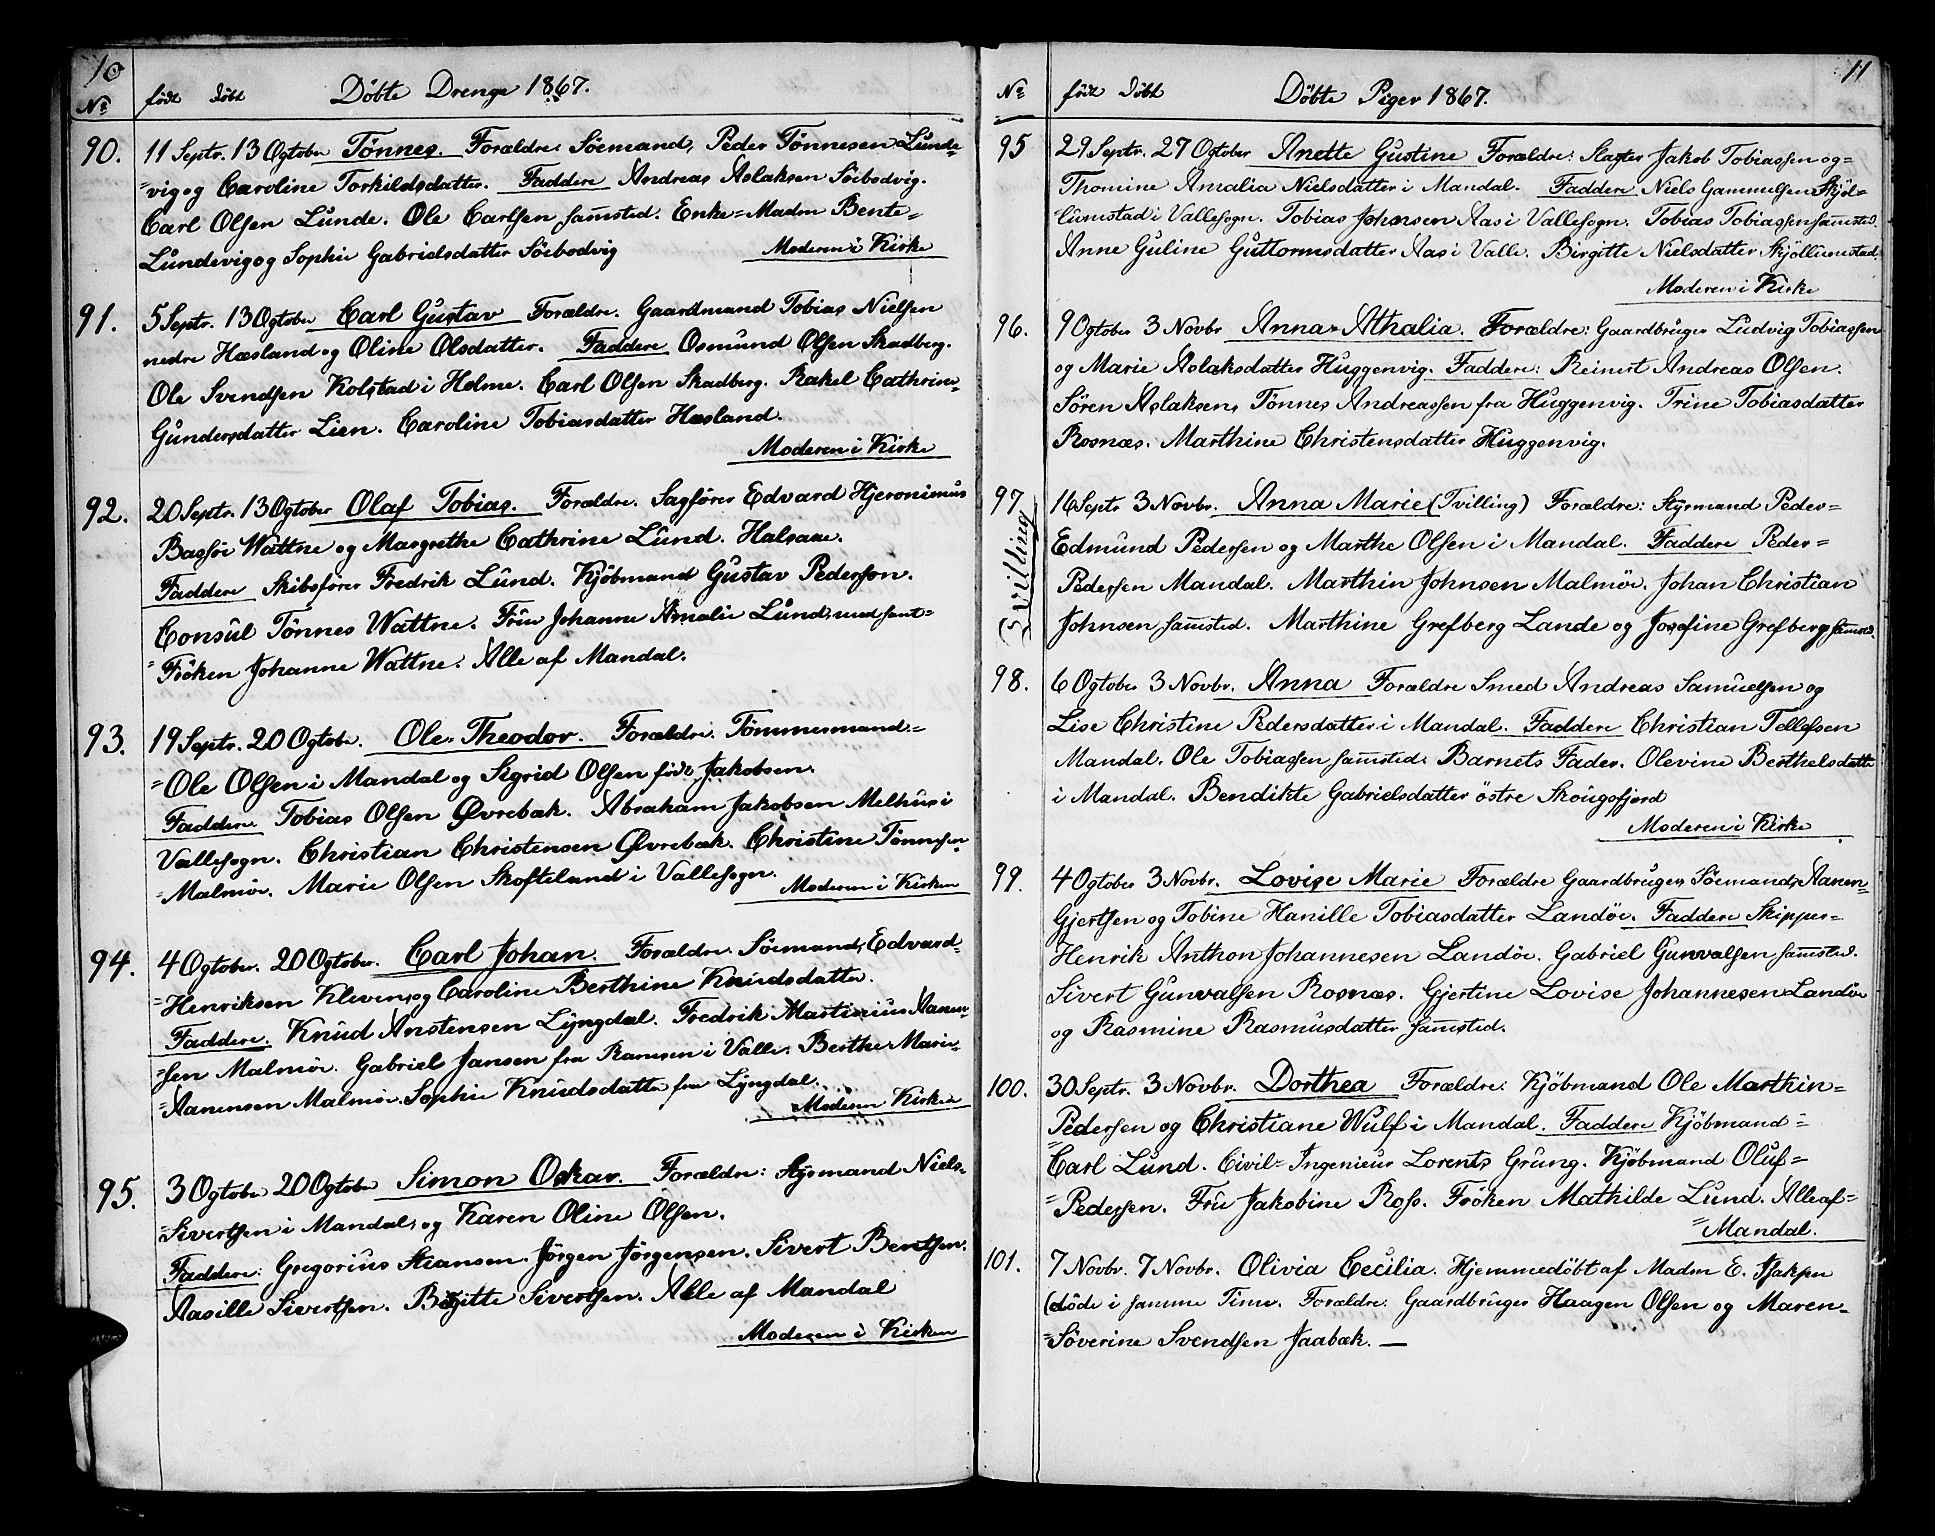 10
No født døbt Döbte Drenge 1867.
90. 11 Septr. 13 Ogtober Tönnes. Forældre: Söemand, Peder Tönnesen Lunde-
=vig og Caroline Torkildsdatter. Faddere Andreas Aslaksen Söebodvig.
Carl Olsen Lunde. Ole Carlsen samsted. Enke=Madm Bente=
Lundevig og Sophie Gabrielsdatter Söebodvig Moderen i Kirke
91. 5 Septr. 13 Ogtober Carl Gustav Forældre. Gaardmand Tobias Nielsen
nedre Hæsland og Oline Olsdatter. Faddere Osmund Olsen Skadberg.
Ole Svendsen Kolstad i Holme. Carl Olsen Skadberg. Rakel Cathrine
Gundersdatter Lien. Caroline Tobiasdatter Hæsland.
Moderen i Kirke
92. 20 Septr. 13 Ogtober Olaf Tobias. Forældre. Sagförer Edvard Hjeronimus
Bassöe Wattne og Margrethe Cathrine Lund. Halsaae.
Faddere Skibsförer Fredrik Lund. Kjöbmand Gustav Pederson.
Consul Tönnes Wattne. Frue Johanne Amalie Lund, med samt=
=Fröken Johanne Wattne. Alle af Mandal.
93. 19 Septr. 20 Ogtobr. Ole=Theodor. Forældre. Tömmermand=
=Ole Olsen i Mandal og Sigrid Olsen født Jakobsen.
Faddere. Tobias Olsen Øvrebæk. Abraham Jakobsen Melhus i
Vallesogn. Christian Christensen Øvrebæk. Christine Tönnesen
=Malmöe. Marie Olsen Skofteland i Vallesogn.
Moderen i Kirken
94. 4 Ogtober. 20 Ogtober. Carl Johan. Forældre. Söemand, Edvard=
=Henriksen Kleven, og Caroline Berthine Knudsdatter.
Faddere. Knud Anstensen Lyngdal. Fredrik Martinius Aanen=
=sen Malmöe. Gabriel Jansen fra Ramsen i Valle. Berthe Marie=
=Aanensen Malmöe. Sophie Knudsdatter fra Lyngdal.
Moderen Kirken
95. 3 Ogtober 20 Ogtober Simon Oskar. Forældre: Styrmand Niels=
=Sivertsen i Mandal, og Karen Oline Olsen.
Faddere: Gregorius Steansen. Jörgen Jörgensen. Sivert Bentsen.
Aasille Sivertsen. Birgitte Sivertsen. Alle af Mandal
Moderen i Kirken
11
No født døbt Döbte Piger 1867.
95 29 Septr. 27 Ogtober Anette Gustine Forældre: Slagter Jakob Tobiassen og=
Thomine Amalia Nielsdatter i Mandal. Faddere Niels Gammelsen Skjöl=
lumstad i Vallesogn. Tobias Johnsen Aas i Vallesogn. Tobias Tobiassen samsted.
Anne Guline Guttormsdatter Aas i Valle. Birgitte Nielsdatter Skjöllumstad,
Moderen i Kirke
96. 9 Ogtober 3 Novbr. Anna=Athalia. Forældre: Gaardbruger Ludvig Tobiassen
og Marie Aslaksdatter Huggenvig. Faddere: Reinert Andreas Olsen.
Sören Aslaksen, Tönnes Andreassen fra Huggenvig. Trine Tobiasdatter
Rosnæs. Marthine Christensdatter Huggenvig.
97 Tvilling 16 Septr 3 Novbr. Anna Marie (Tvilling) Forældre: Styrmand Peder=
Edmund Pedersen og Marthe Olsen i Mandal. Faddere Peder=
Pedersen Mandal. Marthin Johnsen Malmöe. Johan Christian
Johnsen samsted. Marthine Grefberg Lande og Josefine Grefberg samsted.
98. 6 Ogtober 3 Novbr. Anna Forældre Smed Andreas Samuelsen og
Lise Christine Pedersdatter i Mandal. Faddere Christian Tellefsen
Mandal. Ole Tobiassen samsted. Barnets Fader. Olevine Berthelsdatter
i Mandal. Bendikte Gabrielsdatter östre Skougsfjord
Moderen i Kirke
99. 4 Ogtober 3 Novbr. Lovise Marie Forældre Gaardbruger, Söemand, Aanen=
Gjertsen og Tobine Hanille Tobiasdatter Landöe. Faddere Skipper=
Henrik Anthon Johannesen Landöe. Gabriel Gunvalsen samsted.
Sivert Gunvalsen Rosnæs. Gjertine Lovise Johannesen Landöe
og Rasmine Rasmusdatter samsted.
100. 30 Septr. 3 Novbr. Dorthea Forældre: Kjöbmand Ole Marthin=
Pedersen og Christiane Wulf i Mandal. Faddere Kjöbmand=
=Carl Lund. Civil=Ingenieur Lorents Grung. Kjöbmand Oluf=
=Pedersen. Frue Jakobine Ross. Fröken Mathilde Lund. Alle af=
=Mandal.
101. 7 Novbr. 7 Novbr. Olivia Cecilia. Hjemmedöbt af Madm E. Isaksen
(döde i samme Time. Forældre: Gaardbruger Haagen Olsen og Maren=
=Söverine Svendsen Jaabæk. —